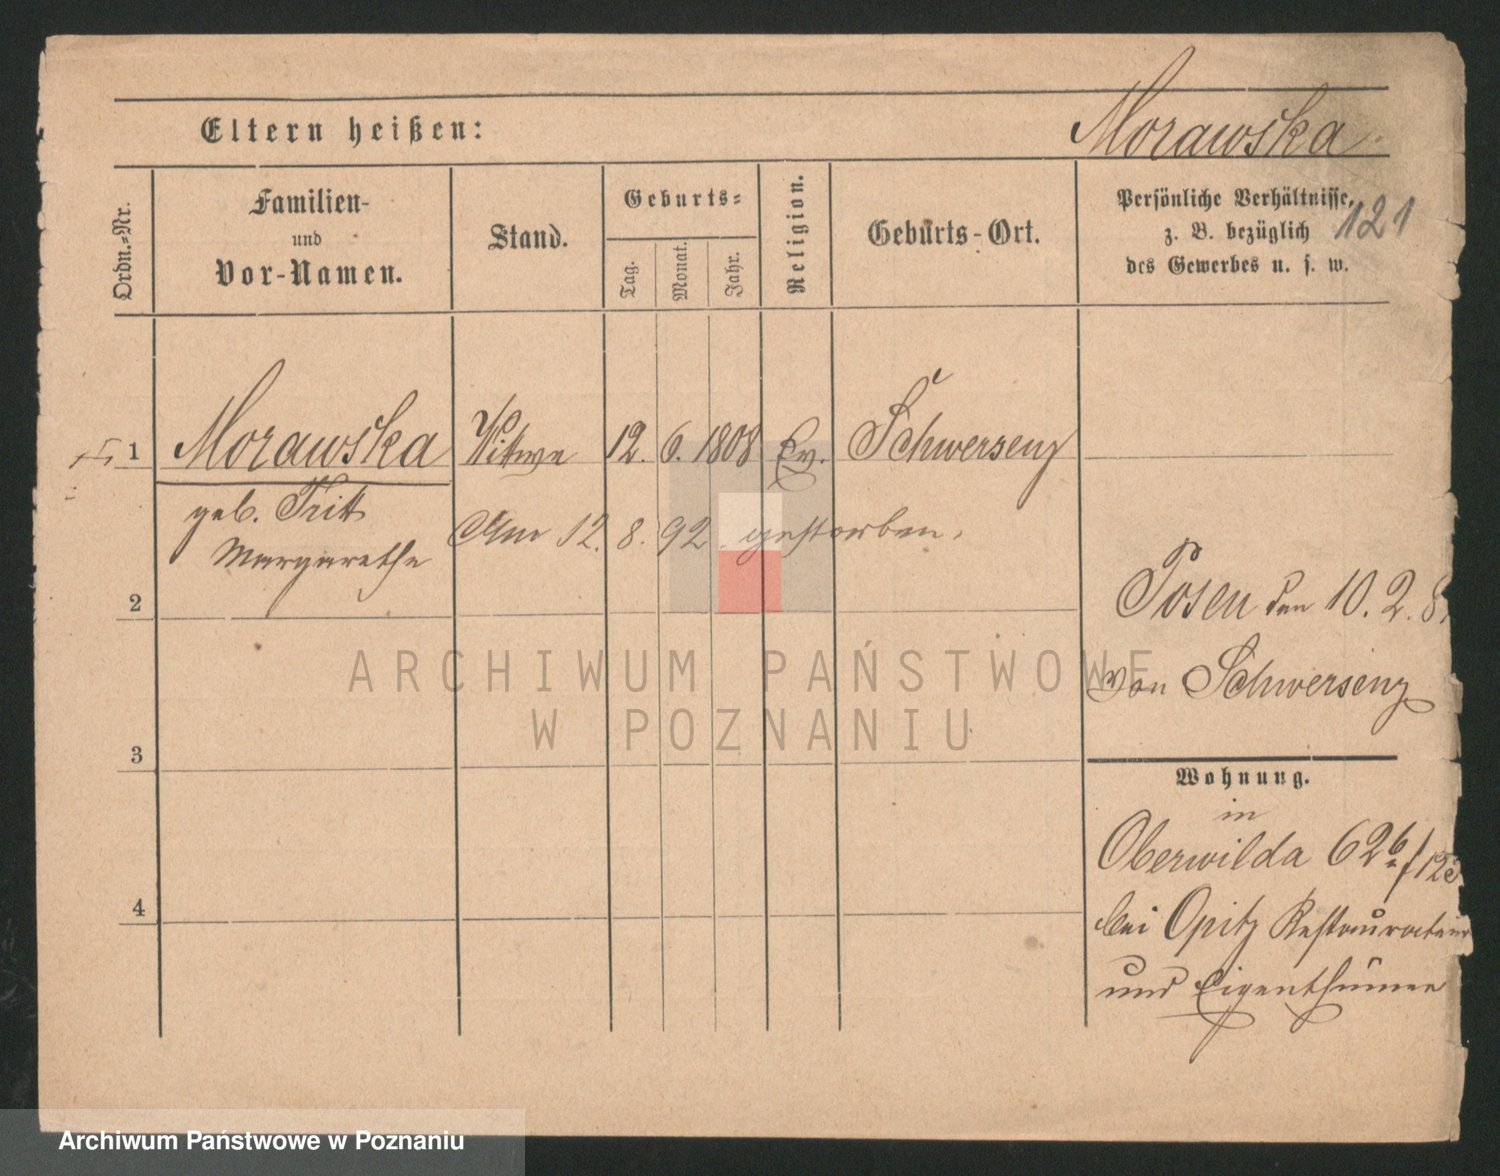 Morawska
Eltern heißen:
Ordn.-Nr.
Familien-
und
Vor-Namen.
Stand.
Geburts-
Tag.
Monat.
Jahr.
Religion.
Geburts-Ort.
Persönliche Verhältnisse,
z. B. bezüglich
des Gewerbes u. s. w.
121
1 Morawska Wittwe 12. 6. 1808 Ev. Schwersenz
geb. Tritt
Margarethe
Am 12. 8. 92 gestorben.
2
Posen den 10. 2. 8
von Schwersenz
3
Wohnung.
in
Oberwilda 62b/12
bei Opitz Restaurateur
und Eigenthümer
4
ARCHIWUM PAŃSTWOWE
W POZNANIU
Archiwum Państwowe w Poznaniu